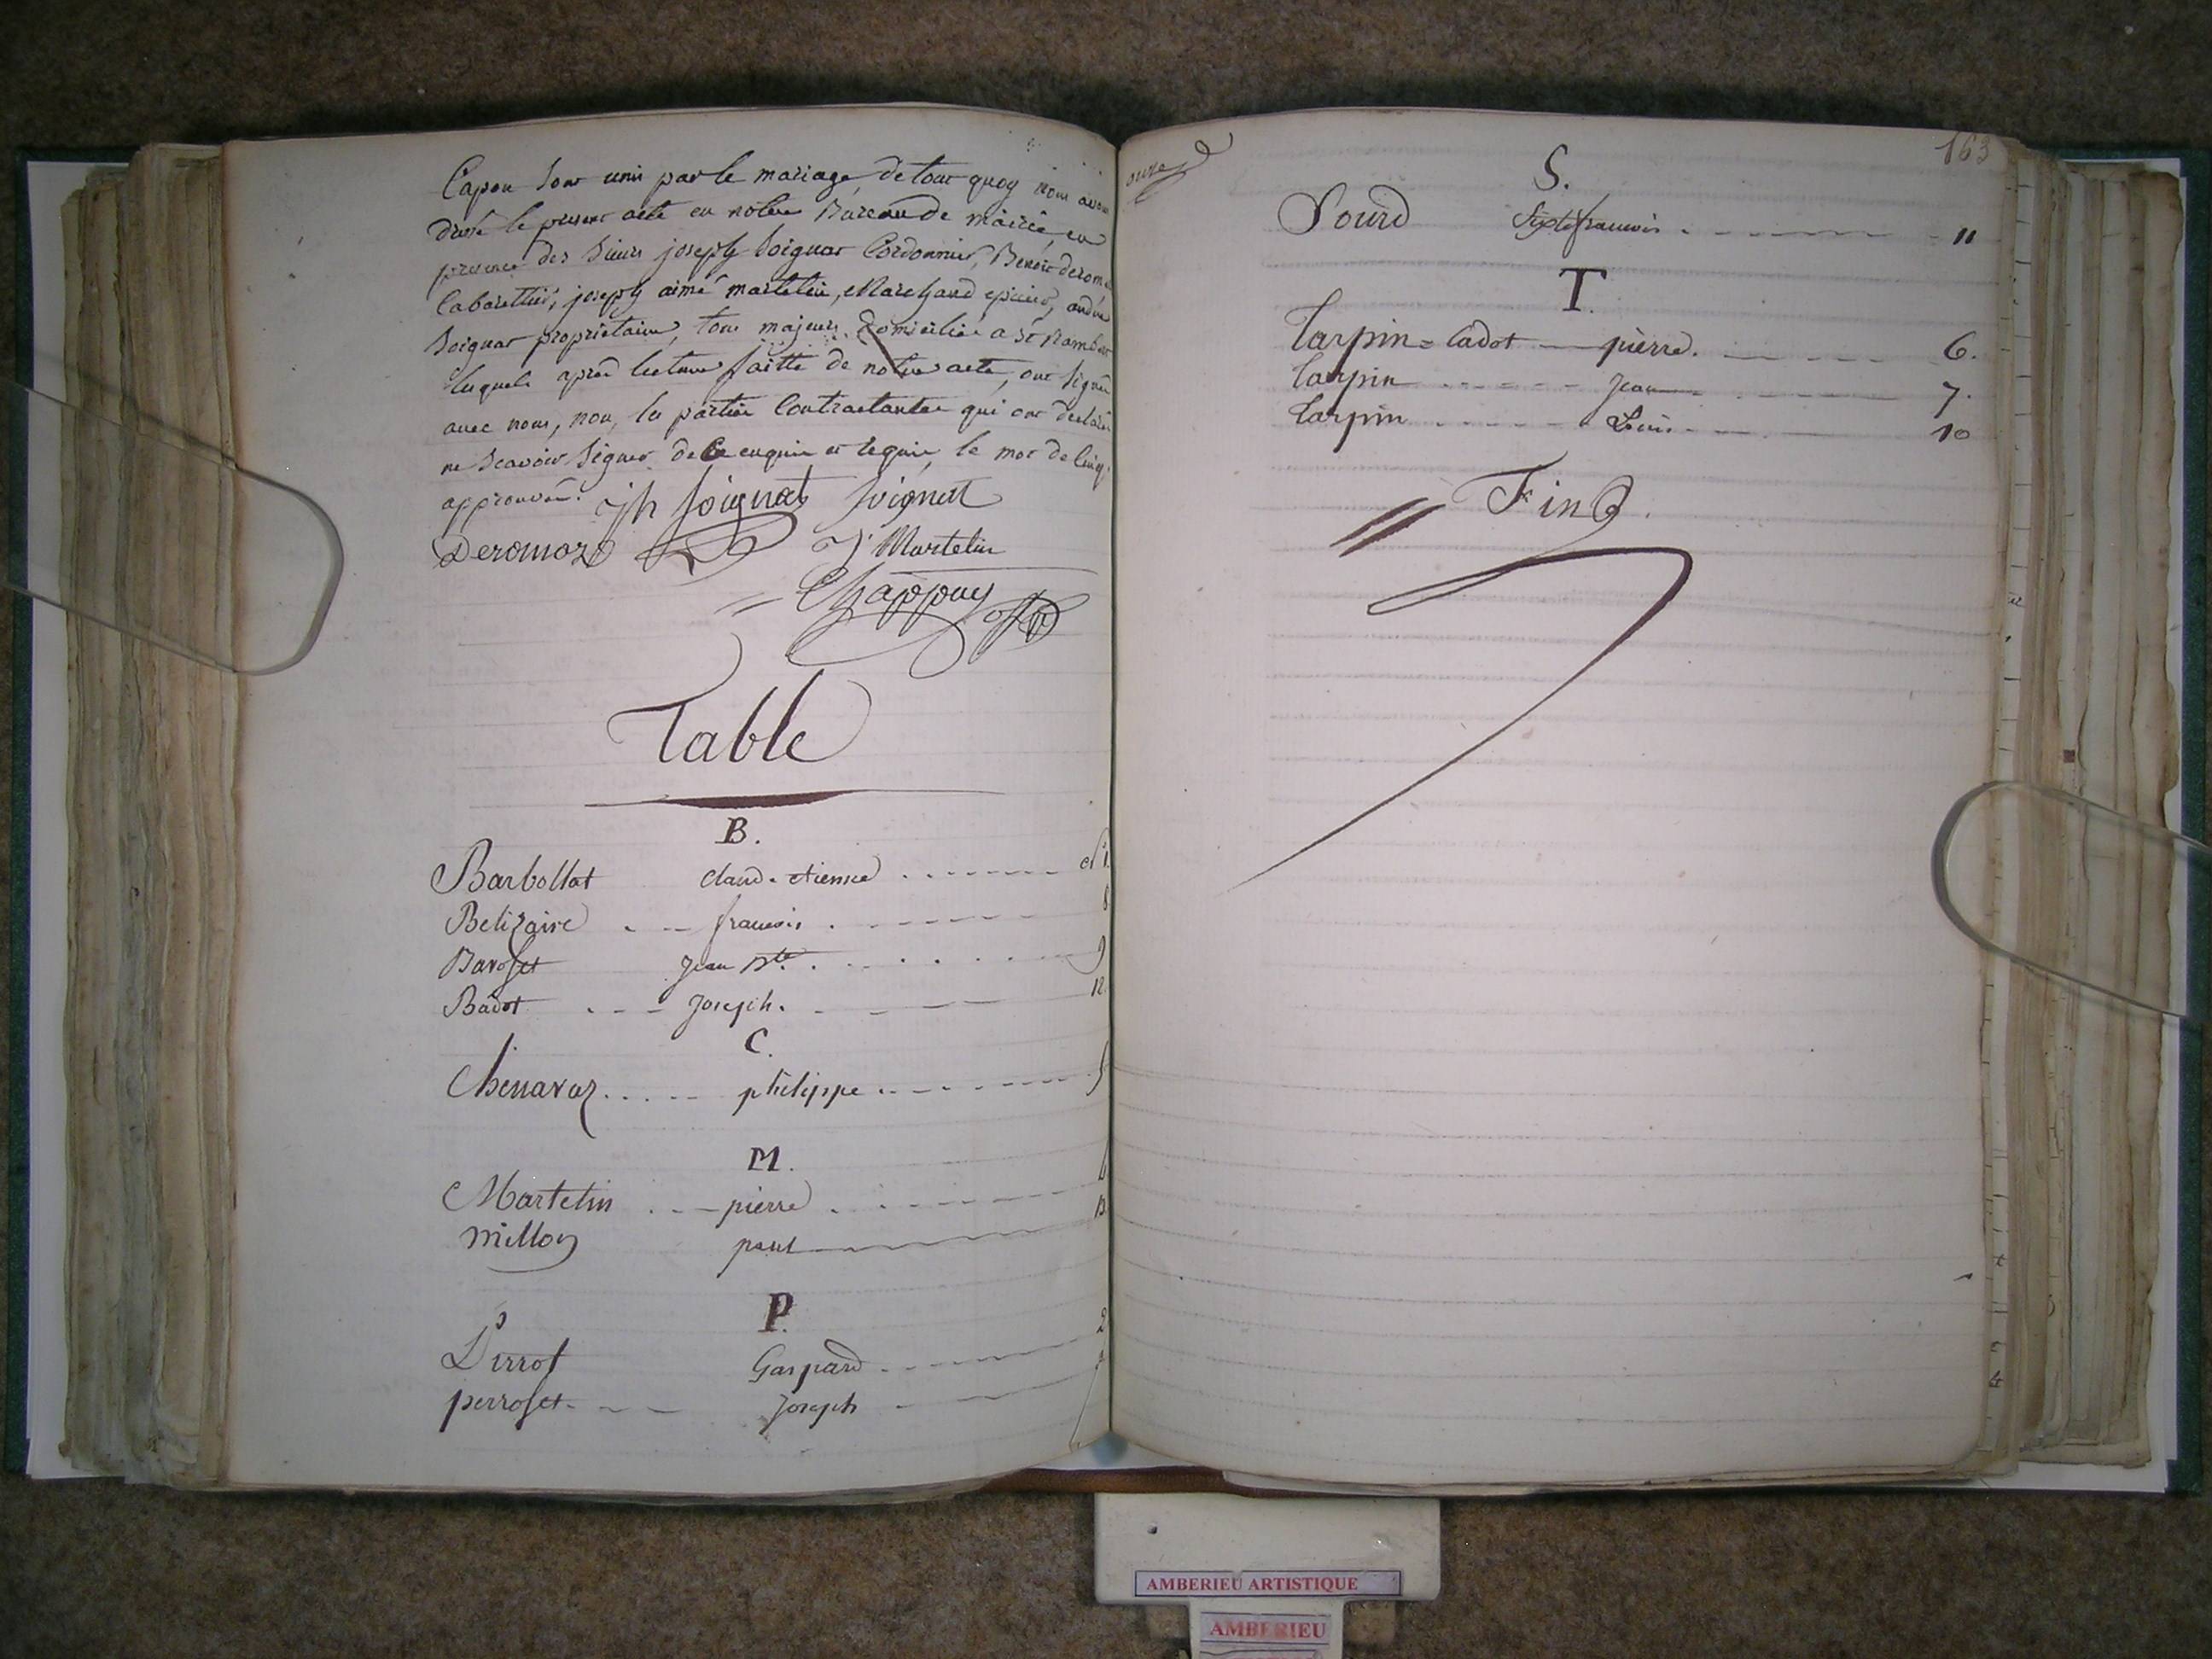 Capon sont unis par le mariage, de tout quoy nous avons
dressé le present acte en notre Bureau de mairie, en
presence des Sieurs joseph Soignat Cordonnier, Benoit deromoz
Cabarettier, joseph aimé martelin, Marchand epicier, andré
Soignat proprietaire, tous majeurs, Domiciliés a St Rambert
lesquels après lecture faitte de notre acte, ont signé
avec nous, non, les parties Contractantes qui ont declaré
ne Scavoir signer de ce enquis et requis, le mot de
approuvé. jh Soignat Soignat
Deromoz J Martelin
Chappuy
Table
B.
Barbollat Claud. etienne N° 1.
Belizaire françois 8
Baroset Jean Bte 9
Badot Joseph. 12
C.
Chenavaz philippe 5
M.
Martelin pierre
Millon paul 13
P.
Pirrot Gaspard 2
perroset Joseph
onze
163
S.
Sourd Sixte françois 11
T.
Tarpin = Cadot pierre. 6.
Tarpin Jean 7.
Tarpin Louis 10
Fin
AMBERIEU ARTISTIQUE
AMBERIEU